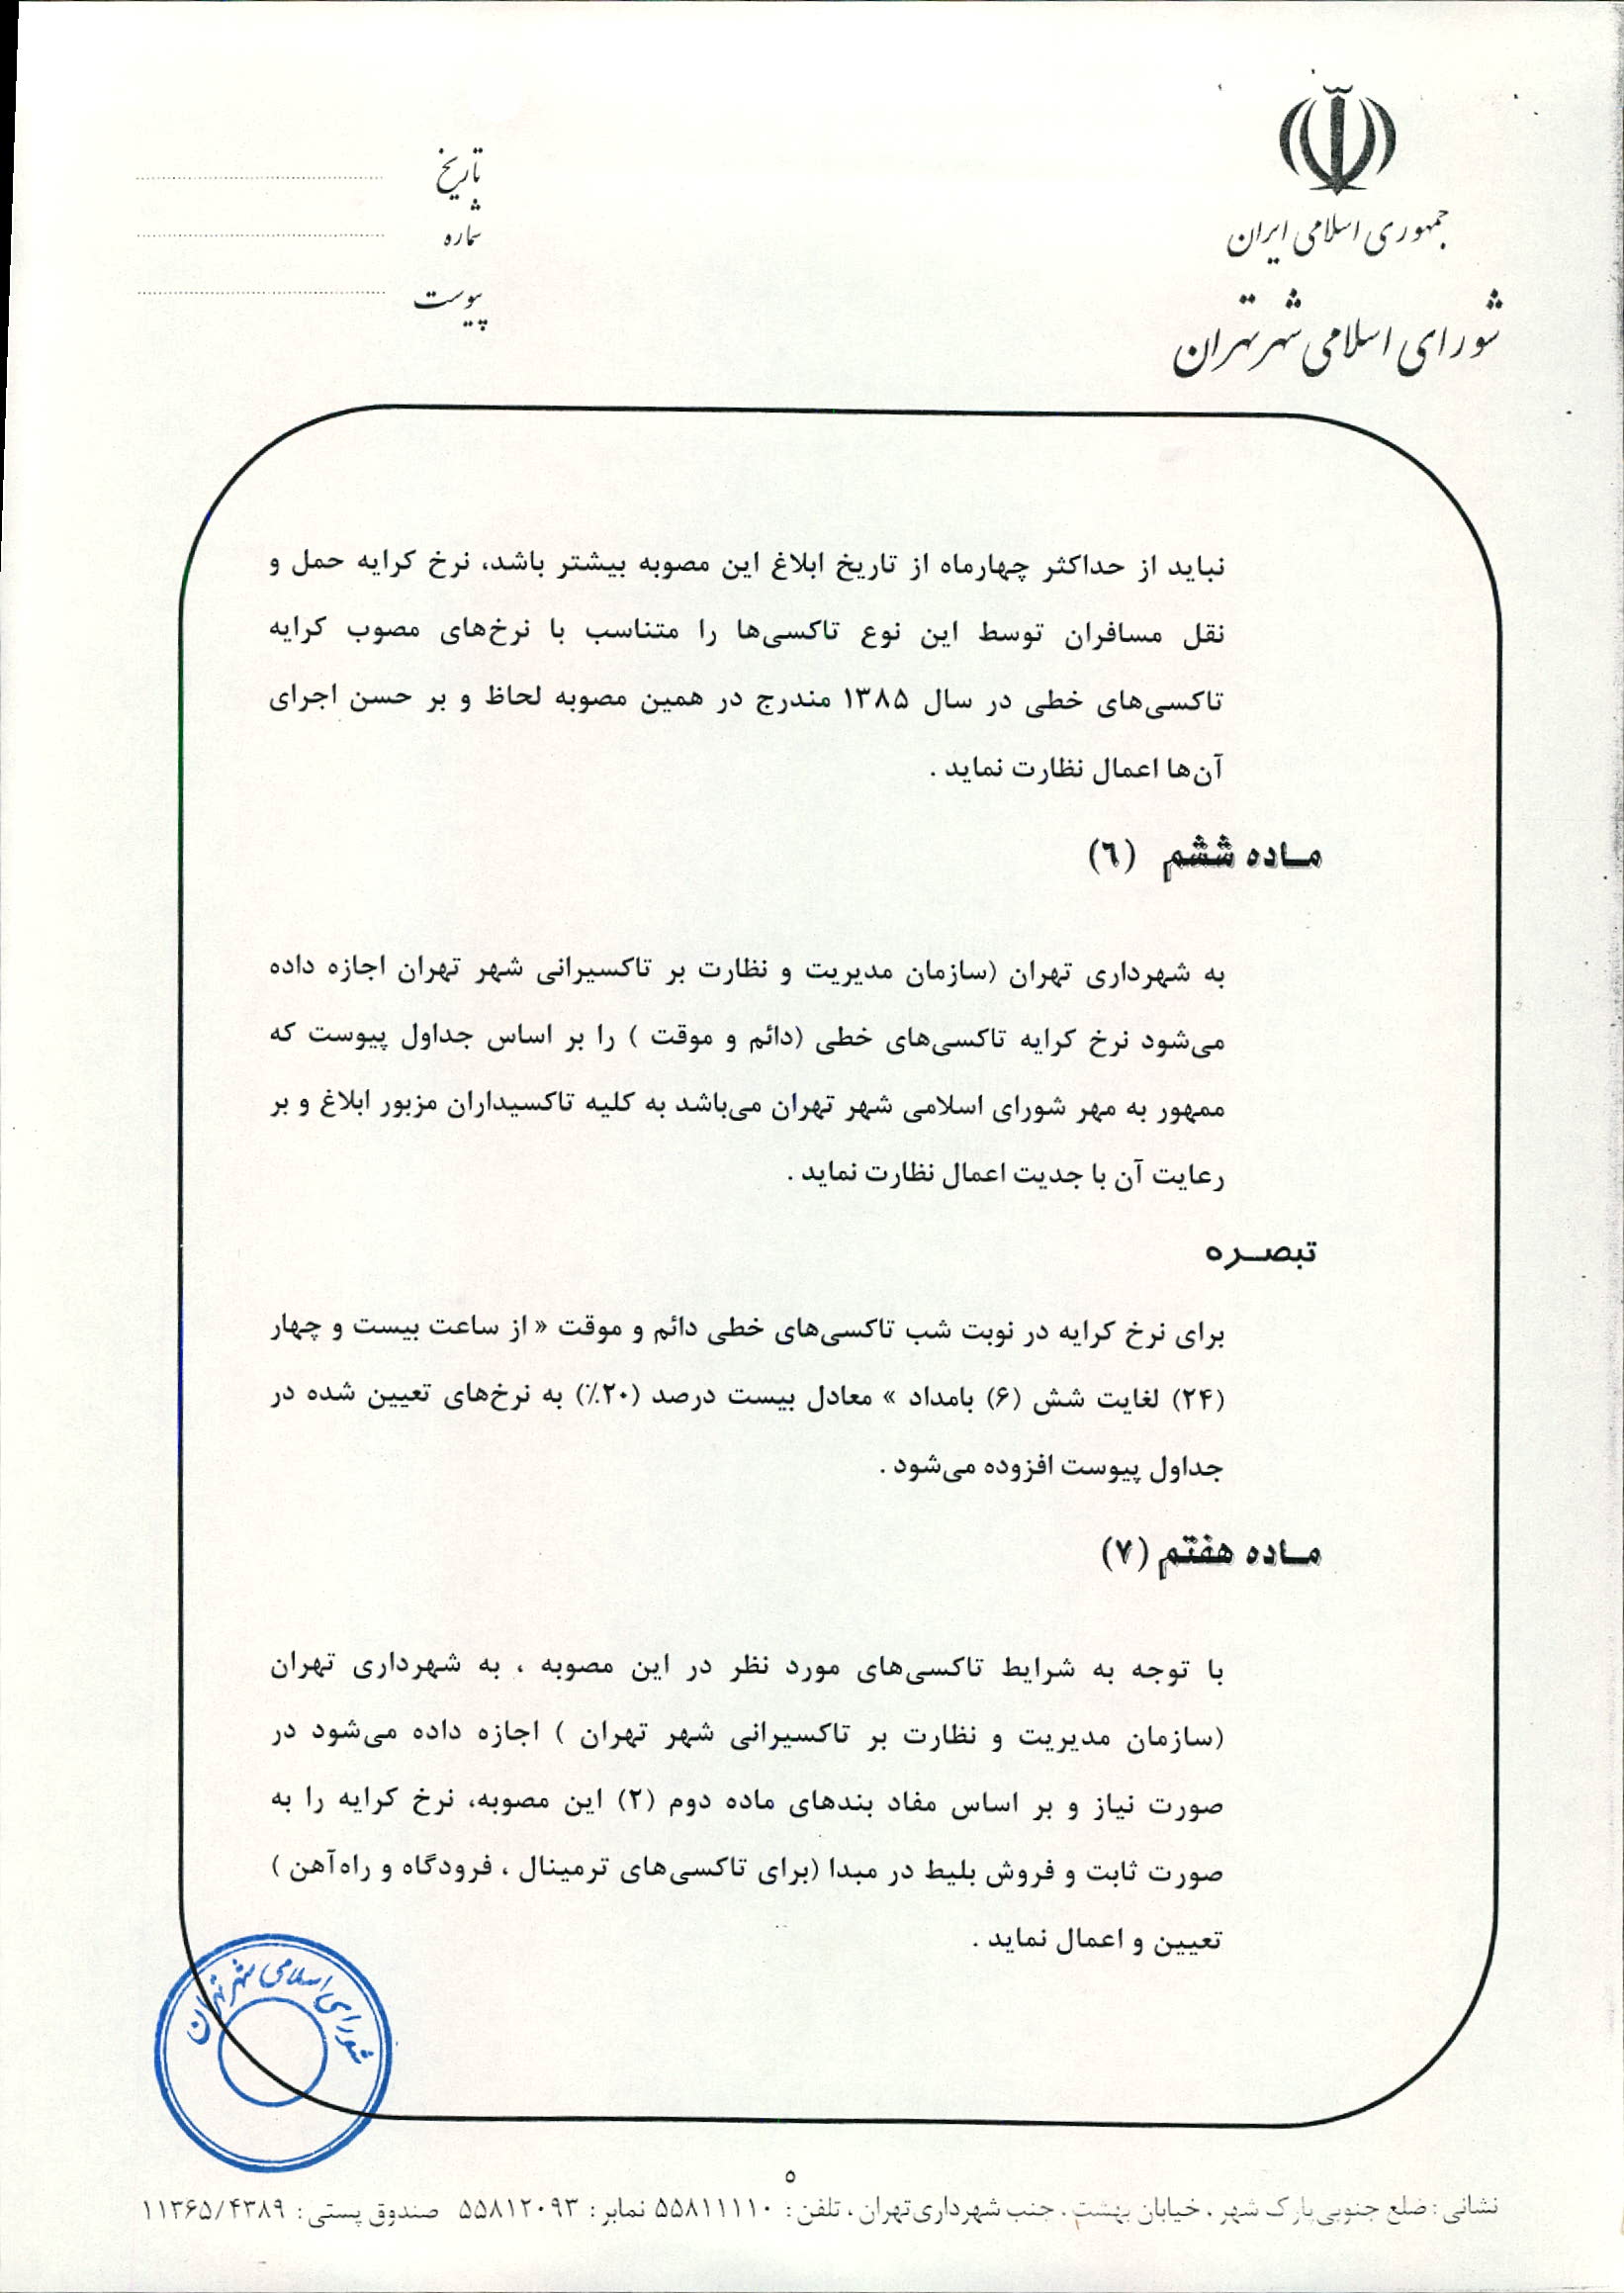 جمهوری اسلامی ایران
شورای اسلامی شهر تهران
تاریخ
شماره
پیوست
نباید از حداکثر چهارماه از تاریخ ابلاغ این مصوبه بیشتر باشد، نرخ کرایه حمل و
نقل مسافران توسط این نوع تاکسی‌ها را متناسب با نرخ‌های مصوب کرایه
تاکسی‌های خطی در سال ۱۳۸۵ مندرج در همین مصوبه لحاظ و بر حسن اجرای
آن‌ها اعمال نظارت نماید .
مـاده ششم (٦)
به شهرداری تهران (سازمان مدیریت و نظارت بر تاکسیرانی شهر تهران اجازه داده
می‌شود نرخ کرایه تاکسی‌های خطی (دائم و موقت ) را بر اساس جداول پیوست که
ممهور به مهر شورای اسلامی شهر تهران می‌باشد به کلیه تاکسیداران مزبور ابلاغ و بر
رعایت آن با جدیت اعمال نظارت نماید .
تبصـره
برای نرخ کرایه در نوبت شب تاکسی‌های خطی دائم و موقت « از ساعت بیست و چهار
(۲۴) لغایت شش (۶) بامداد » معادل بیست درصد (۲۰٪) به نرخ‌های تعیین شده در
جداول پیوست افزوده می‌شود .
مـاده هفتم (۷)
با توجه به شرایط تاکسی‌های مورد نظر در این مصوبه ، به شهرداری تهران
(سازمان مدیریت و نظارت بر تاکسیرانی شهر تهران ) اجازه داده می‌شود در
صورت نیاز و بر اساس مفاد بندهای ماده دوم (۲) این مصوبه، نرخ کرایه را به
صورت ثابت و فروش بلیط در مبدا (برای تاکسی‌های ترمینال ، فرودگاه و راه‌آهن )
تعیین و اعمال نماید .
شورای اسلامی شهر تهران
۵
نشانی : ضلع جنوبی پارک شهر ، خیابان بهشت ، جنب شهرداری تهران ، تلفن : ۵۵۸۱۱۱۱۰ نمابر : ۵۵۸۱۲۰۹۳ صندوق پستی : ۱۱۳۶۵/۴۳۸۹